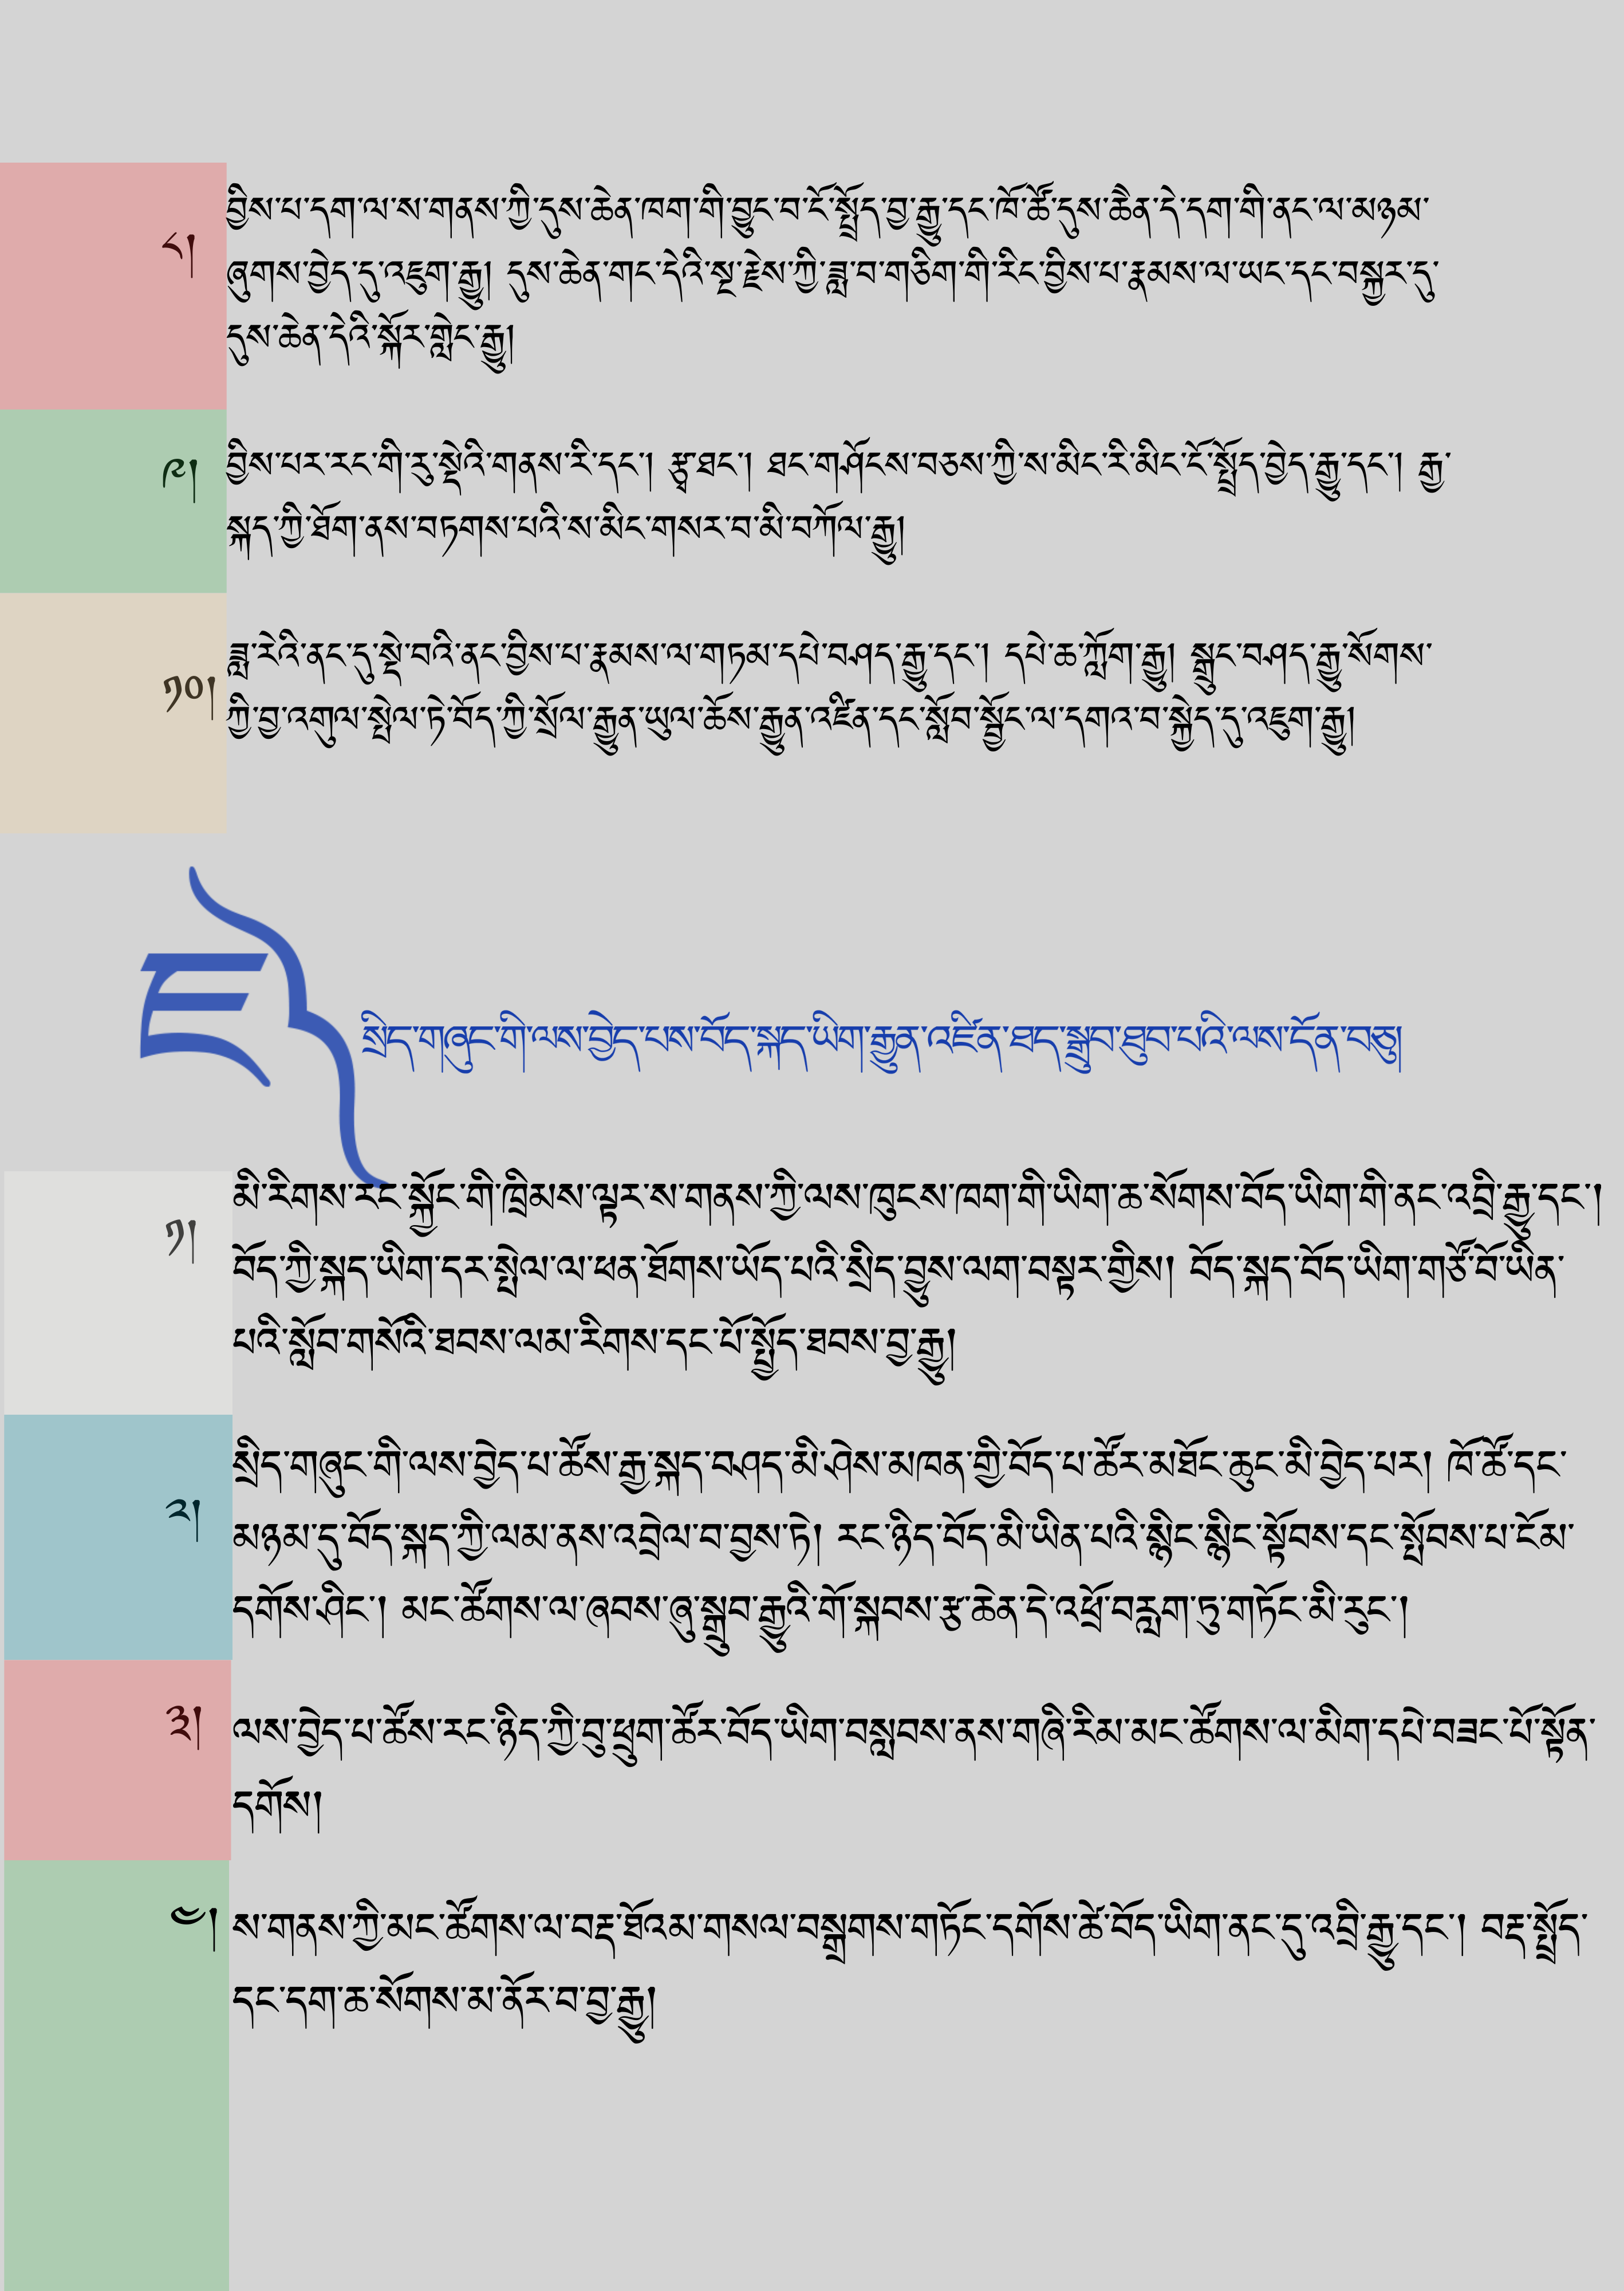 ༨། བྱིས་པ་དག་ལ་ས་གནས་ཀྱི་དུས་ཆེན་ཁག་གི་བྱུང་བ་ངོ་སྤྲོད་བྱ་རྒྱུ་དང་ཁོ་ཚོ་དུས་ཆེན་དེ་དག་གི་ནང་ལ་མཉམ་
ཞུགས་བྱེད་དུ་འཇུག་རྒྱུ། དུས་ཆེན་གང་དེའི་སྔ་རྗེས་ཀྱི་ཟླ་བ་གཅིག་གི་རིང་བྱིས་པ་རྣམས་ལ་ཡང་དང་བསྐྱར་དུ་
དུས་ཆེན་དེའི་སྐོར་གླེང་རྒྱུ།
༩། བྱིས་པར་རང་གི་རུ་སྡེའི་གནས་རི་དང་། རྩྭ་ཐང་། ཐང་གཤོངས་བཅས་ཀྱི་ས་མིང་རི་མིང་ངོ་སྤྲོད་བྱེད་རྒྱུ་དང་། རྒྱ་
སྐད་ཀྱི་ཐོག་ནས་བཏགས་པའི་ས་མིང་གསར་བ་མི་བཀོལ་རྒྱུ།
༡༠། ཟླ་རེའི་ནང་དུ་སྡེ་བའི་ནང་བྱིས་པ་རྣམས་ལ་གཏམ་དཔེ་བཤད་རྒྱུ་དང་། དཔེ་ཆ་ཀློག་རྒྱུ། སྒྲུང་བཤད་རྒྱུ་སོགས་
ཀྱི་བྱ་འགུལ་སྤེལ་ཏེ་བོད་ཀྱི་སྲོལ་རྒྱུན་ཡུལ་ཆོས་རྒྱུན་འཛིན་དང་སློབ་སྦྱོང་ལ་དགའ་བ་སྐྱེད་དུ་འཇུག་རྒྱུ།
ང༽ སྲིད་གཞུང་གི་ལས་བྱེད་པས་བོད་སྐད་ཡིག་རྒྱུན་འཛིན་ཐད་སྒྲུབ་ཐུབ་པའི་ལས་དོན་བཅུ།
༡། མི་རིགས་རང་སྐྱོང་གི་ཁྲིམས་ལྟར་ས་གནས་ཀྱི་ལས་ཁུངས་ཁག་གི་ཡིག་ཆ་སོགས་བོད་ཡིག་གི་ནང་འབྲི་རྒྱུ་དང་།
བོད་ཀྱི་སྐད་ཡིག་དར་སྤེལ་ལ་ཕན་ཐོགས་ཡོད་པའི་སྲིད་བྱུས་ལག་བསྟར་གྱིས། བོད་སྐད་བོད་ཡིག་གཙོ་བོ་ཡིན་
པའི་སློབ་གསོའི་ཐབས་ལམ་རིགས་དང་པོ་སྤྱོད་ཐབས་བྱ་རྒྱུ།
༢། སྲིད་གཞུང་གི་ལས་བྱེད་པ་ཚོས་རྒྱ་སྐད་བཤད་མི་ཤེས་མཁན་གྱི་བོད་པ་ཚོར་མཐོང་ཆུང་མི་བྱེད་པར། ཁོ་ཚོ་དང་
མཉམ་དུ་བོད་སྐད་ཀྱི་ལམ་ནས་འབྲེལ་བ་བྱས་ཏེ། རང་ཉིད་བོད་མི་ཡིན་པའི་སྙིང་སྙིང་སྟོབས་དང་སྤོབས་པ་ངོམ་
དགོས་ཤིང་། མང་ཚོགས་ལ་ཞབས་ཞུ་སྒྲུབ་རྒྱུའི་གོ་སྐབས་རྩ་ཆེན་དེ་འཕྲོ་བརླག་ཏུ་གཏོང་མི་རུང་།
༣། ལས་བྱེད་པ་ཚོས་རང་ཉིད་ཀྱི་བུ་ཕྲུག་ཚོར་བོད་ཡིག་བསླབས་ནས་གཞི་རིམ་མང་ཚོགས་ལ་མིག་དཔེ་བཟང་པོ་སྟོན་
དགོས།
༤། ས་གནས་ཀྱི་མང་ཚོགས་ལ་བརྡ་ཐོའམ་གསལ་བསྒྲགས་གཏོང་དགོས་ཚེ་བོད་ཡིག་ནང་དུ་འབྲི་རྒྱུ་དང་། བརྡ་སྤྲོད་
དང་དག་ཆ་སོགས་མ་ནོར་བ་བྱ་རྒྱུ།